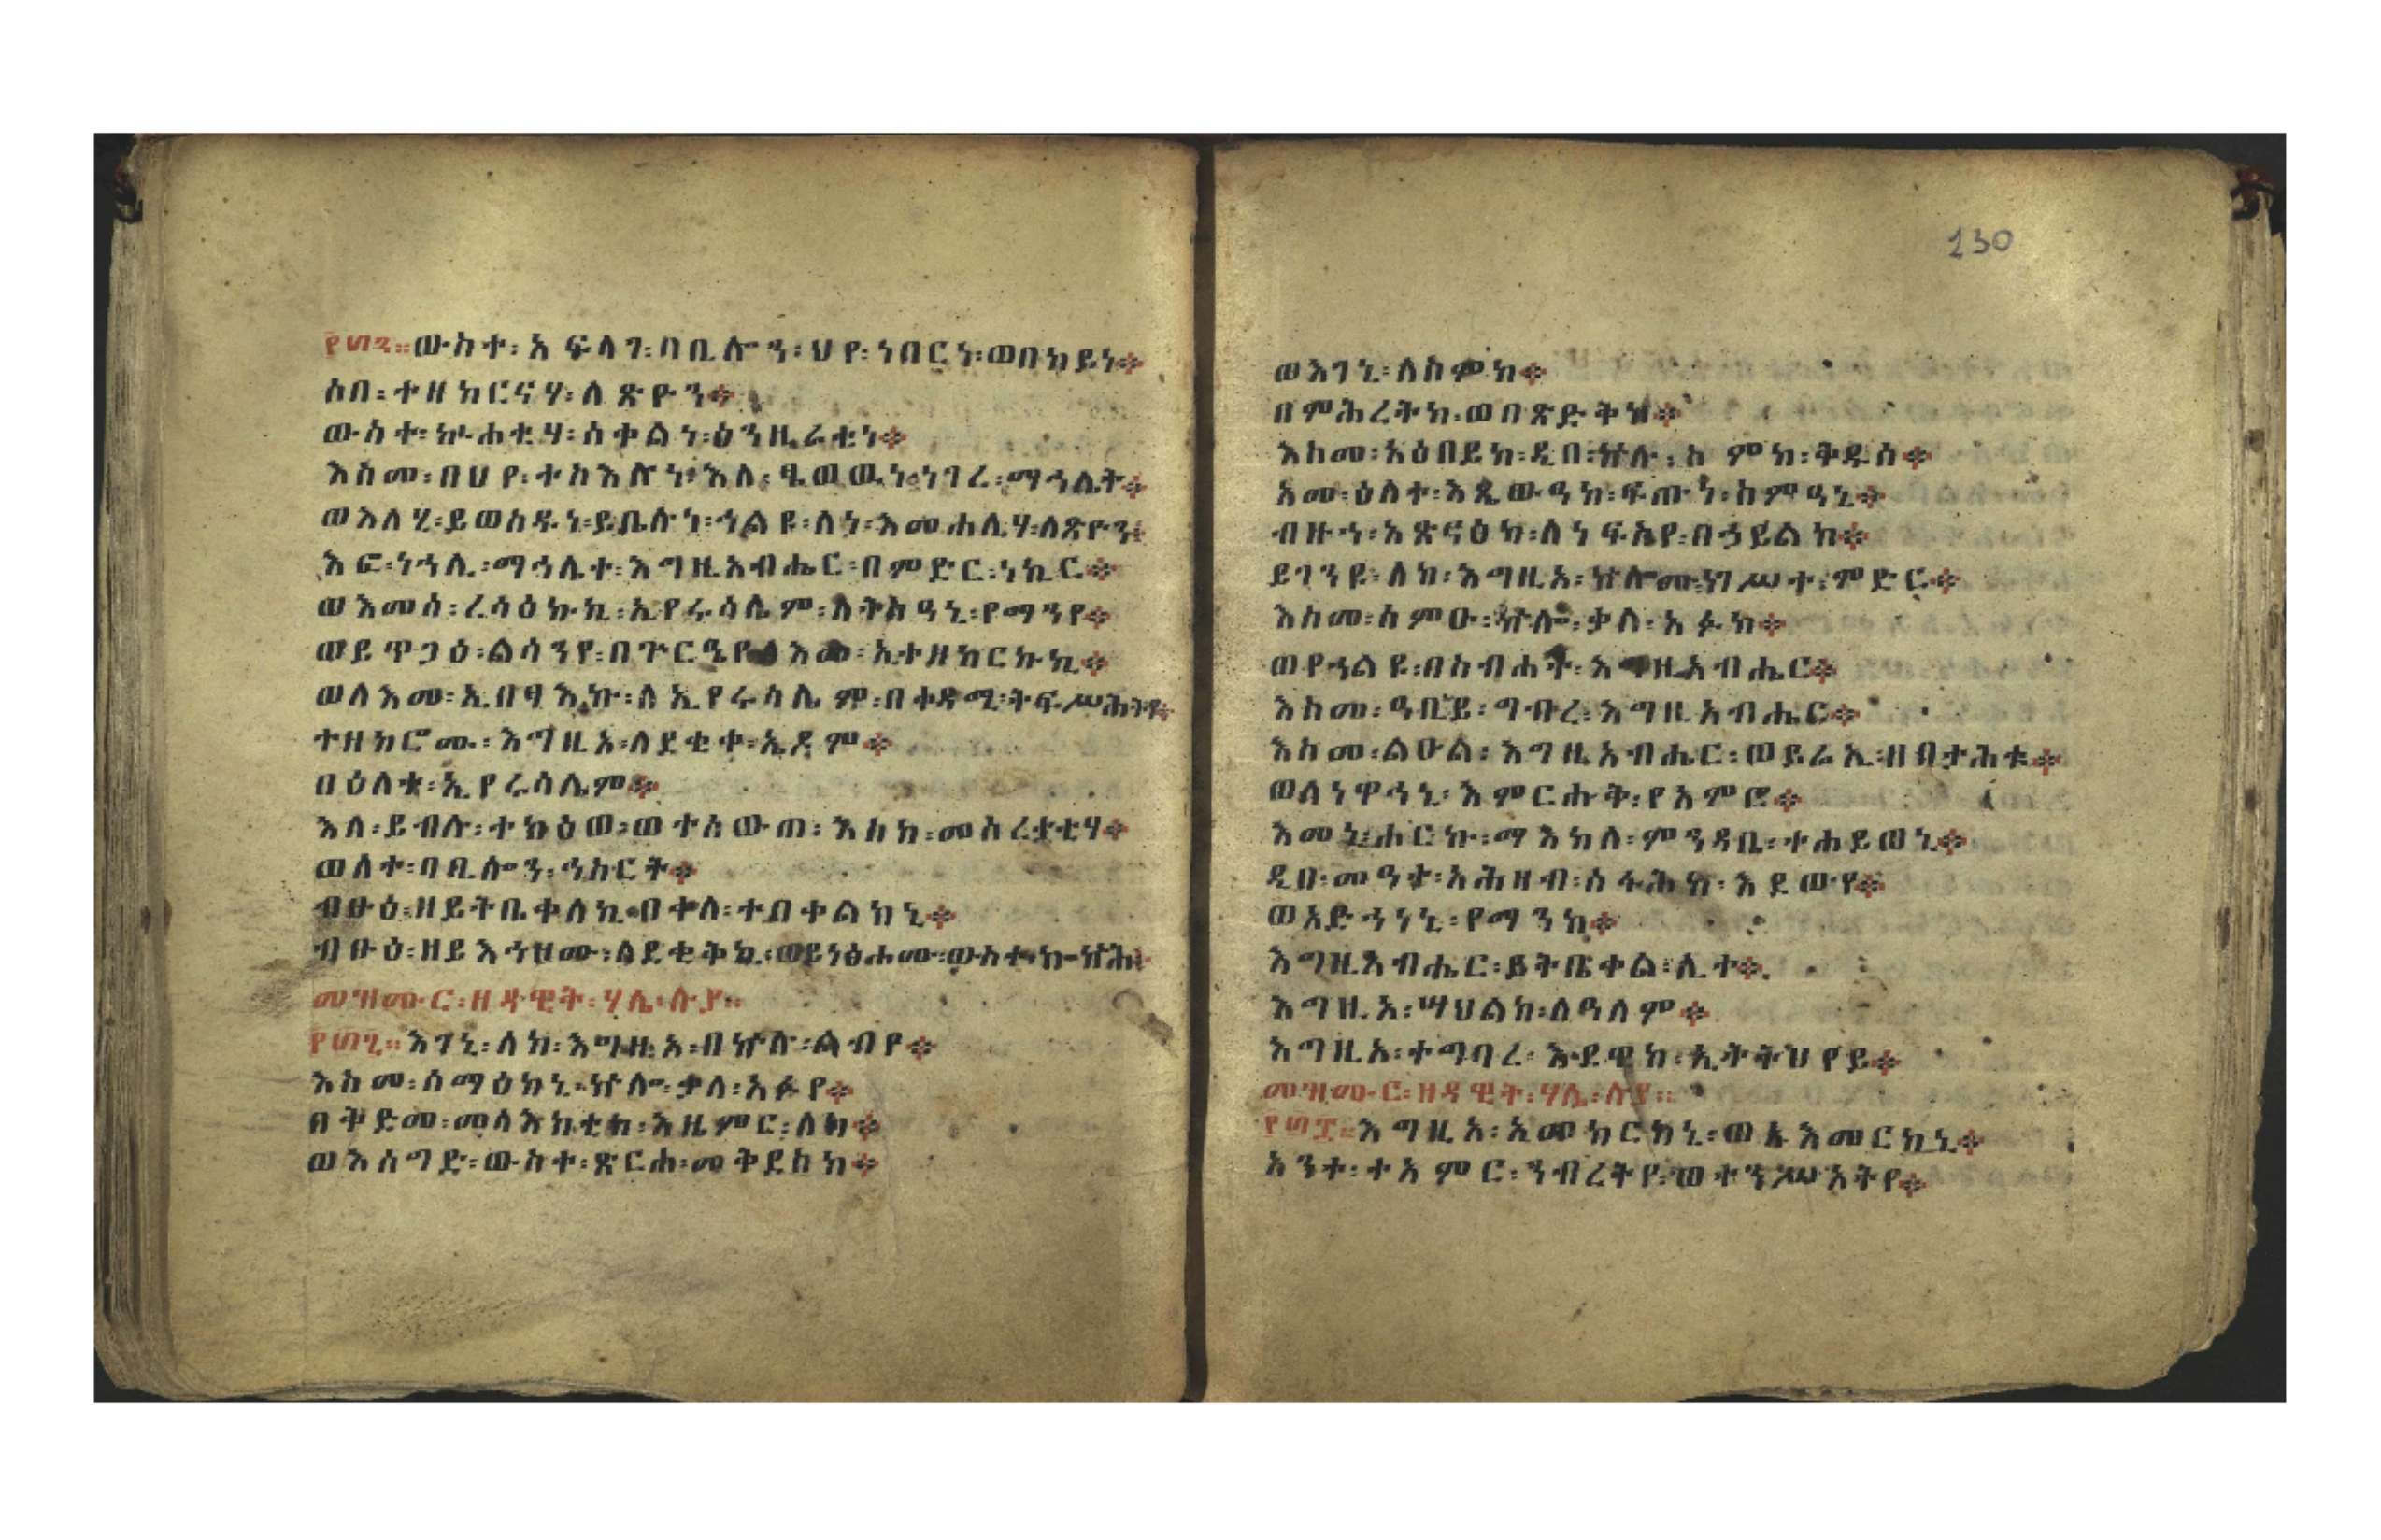 ፻፴፮። ውስተ፡አፍላገ፡ባቢሎን፡ህየ፡ነበርነ፡ወበከይነ፨
ሶበ፡ተዘከርናሃ፡ለጽዮን፨
ውስተ፡ኵሐቲሃ፡ሰቀልነ፡ዕንዚራቲነ፨
እስመ፡በህየ፡ተስእሉነ፡እለ፡ፄወዉነ፡ነገረ፡ማኅሌት፨
ወእለሂ፡ይወስዱነ፡ይቤሉነ፡ኅልዩ፡ለነ፡እመሐሊሃ፡ለጽዮን፨
እፎ፡ነኀሊ፡ማኅሌተ፡እግዚአብሔር፡በምድር፡ነኪር፨
ወእመሰ፡ረሳዕኩኪ፡ኢየሩሳሌም፡ለትከዓኒ፡የማንየ፨
ወይጥጋዕ፡ልሳንየ፡በጕርዔየ፡እመ፡ኢተዘከርኩኪ፨
ወለእመ፡ኢበፃእኩ፡ለኢየሩሳሌም፡በቀዳሚ፡ትፍሥሕትየ፨
ተዘከሮሙ፡እግዚአ፡ለደቂቀ፡ኤዶም፨
በዕለተ፡ኢየሩሳሌም፨
እለ፡ይብሉ፡ተኩዕወ፡ወተሰውጠ፡እስከ፡መሰረቲቲሃ፨
ወለተ፡ባቢሎን፡ኅስርት፨
ብፁዕ፡ዘይትቤቀለኪ፡በቀለ፡ተበቀልክኒ፨
ብፁዕ፡ዘይእኅዞሙ፡ለደቂቅኪ፡ወይነፅሖሙ፡ውስተ፡ኰኵሕ፨
መዝሙር፡ዘዳዊት፡ሃሌ፡ሉያ።
፻፴፯። እገኒ፡ለከ፡እግዚአ፡በኵሉ፡ልብየ፨
እስመ፡ሰማዕከኒ፡ኵሎ፡ቃለ፡አፉየ፨
በቅድመ፡መላእክቲከ፡እዜምር፡ለከ፨
ወእሰግድ፡ውስተ፡ጽርሐ፡መቅደስከ፨
130
ወእገኒ፡ለስምከ፨
በምሕረትከ፡ወበጽድቅከ፨
እስመ፡አዕበይከ፡ዲበ፡ኵሉ፡ስምከ፡ቅዱስ፨
አመ፡ዕለተ፡እጼውዓከ፡ፍጡነ፡ስምዓኒ፨
ብዙኀ፡አጽናዕካ፡ለነፍስየ፡በኃይልከ፨
ይገንዩ፡ለከ፡እግዚአ፡ኵሎሙ፡ነገሥተ፡ምድር፨
እስመ፡ሰምዑ፡ኵሎ፡ቃለ፡አፉከ፨
ወየኀልዩ፡በስብሐት፡እግዚአብሔር፨
እስመ፡ዓቢይ፡ግብረ፡እግዚአብሔር፨
እስመ፡ልዑል፡እግዚአብሔር፡ወይሬኢ፡ዘበታሕቱ፨
ወለነዋኅኒ፡እምርሑቅ፡የአምሮ፨
እመኒ፡ሖርኩ፡ማእከለ፡ምንዳቤ፡ተሐይወኒ፨
ዲበ፡መዓተ፡አሕዛብ፡ሰፋሕከ፡እደውየ፨
ወአድኀነኒ፡የማንከ፨
እግዚአብሔር፡ይትቤቀል፡ሊተ፨
እግዚአ፡ሣህልከ፡ለዓለም፨
እግዚአ፡ተግባረ፡እደዊከ፡ኢትትሀየይ፨
መዝሙር፡ዘዳዊት፡ሃሌ፡ሉያ።
፻፴፰። እግዚአ፡አመከርከኒ፡ወአእመርከኒ፨
አንተ፡ተአምር፡ንብረትየ፡ወተንሥአትየ፨